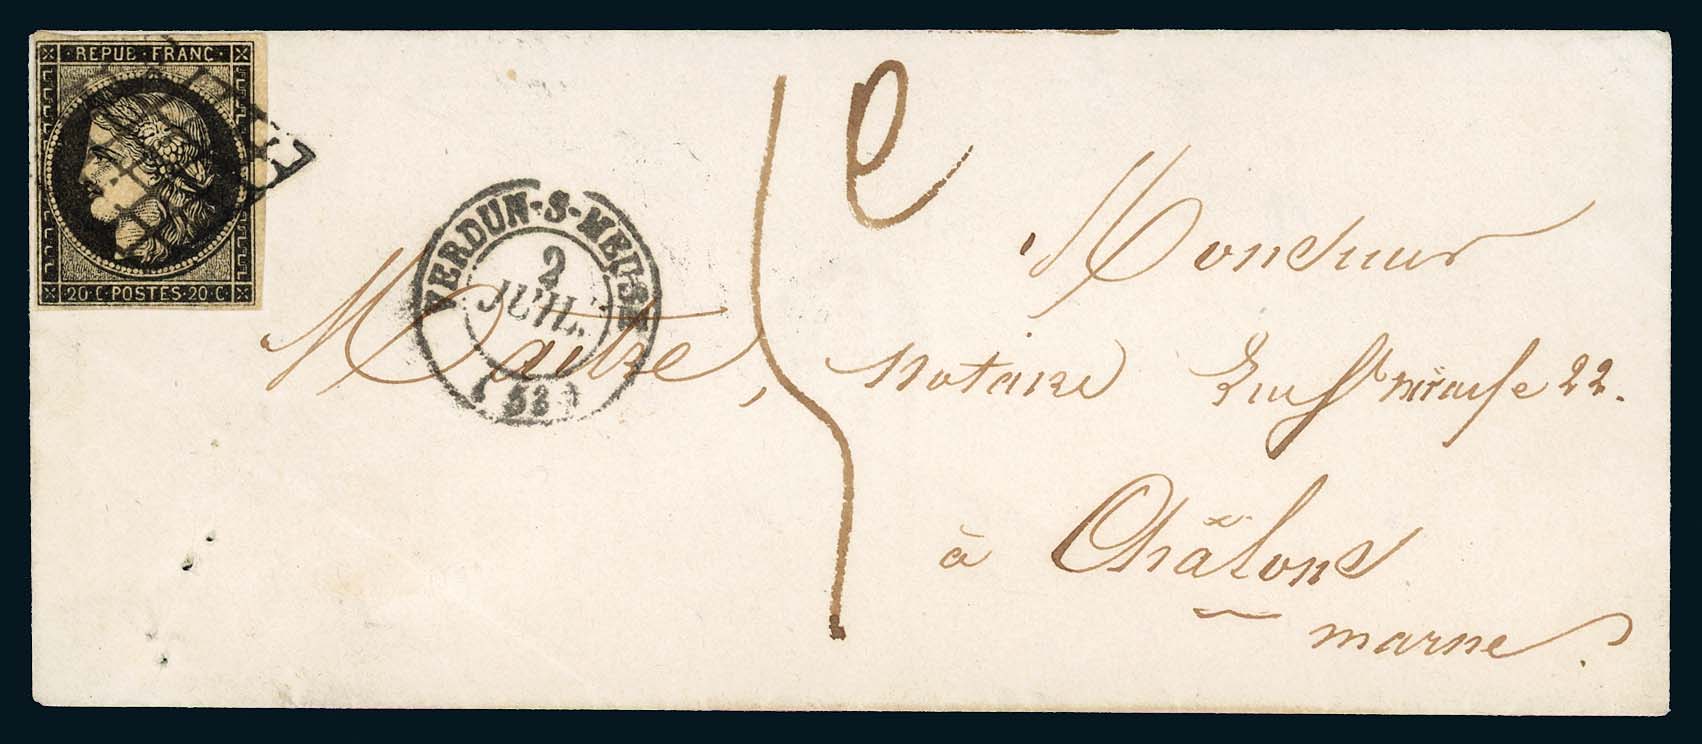 REPUB · FRANC ·
20 · C · POSTES · 20 · C ·
VERDUN-S-MEUSE
2
JUIL.
(53)
5 e
Monsieur
Maitre, notaire Rue 22.
à Châlons
marne.